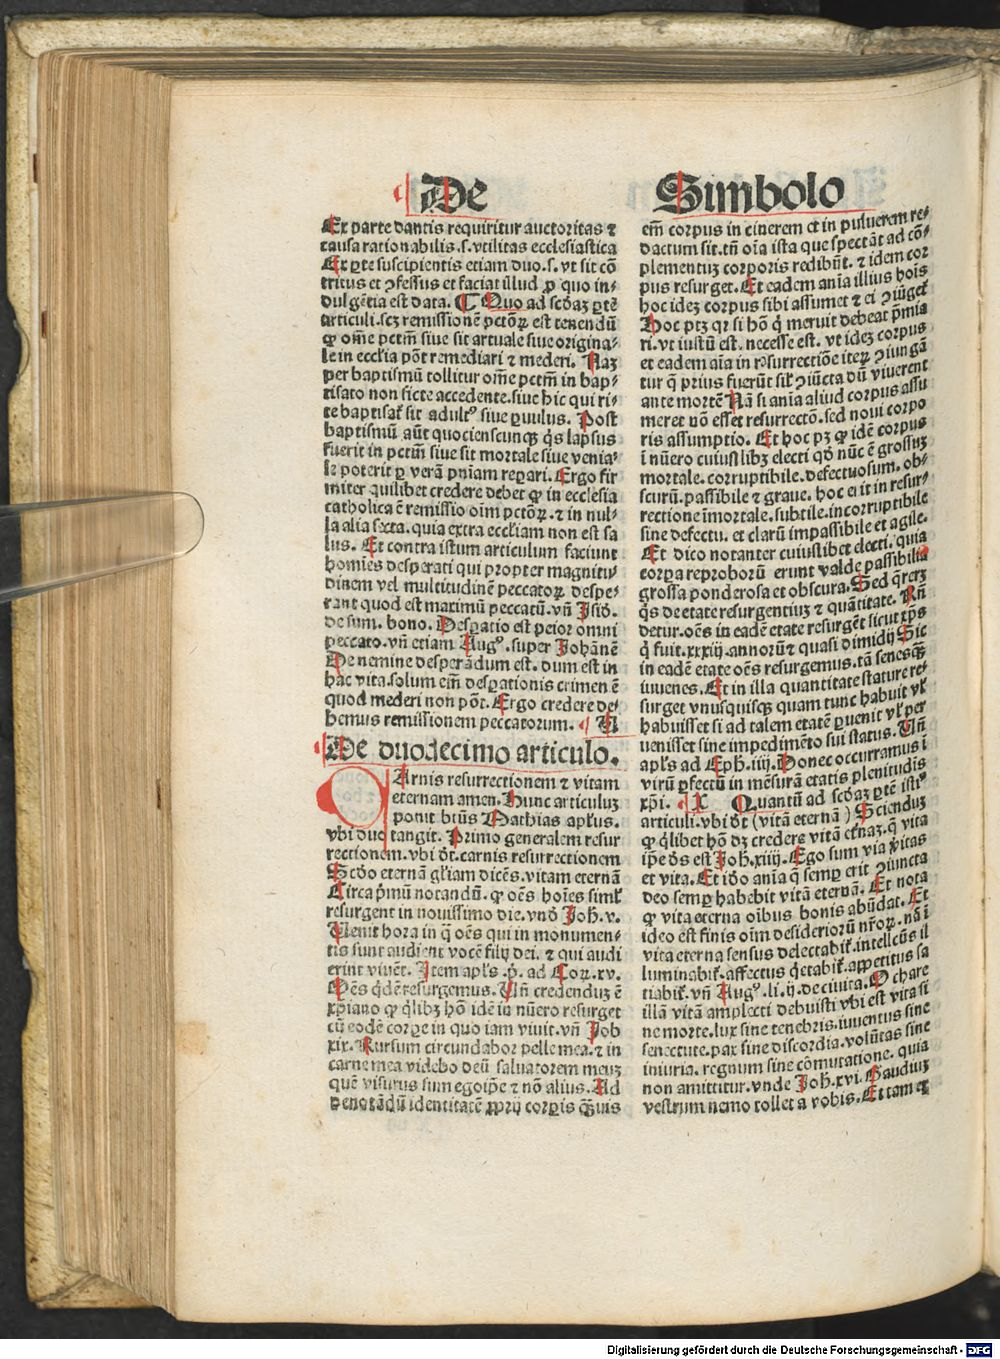 De Simbolo
Ex parte dantis requiritur auctoritas ⁊
causa rationabilis .s. vtilitas ecclesiastica
Ex ꝑte suscipientis etiam duo .s. vt sit cō
tritus et ꝯfessus et faciat illud ꝓ quo in⸗
dulgētia est data. ¶ Quo ad scd̄aꝫ ꝑtē
articuli. scꝫ remissionē pctōꝝ est tenendū
ꝙ om̄e pctm̄ siue sit actuale siue origina⸗
le in eccl̓ia pōt remediari ⁊ mederi. Naꝫ
per baptismū tollitur om̄e pctm̄ in bap⸗
tisato non ficte accedente. siue hic qui ri⸗
te baptisat̄ sit adultꝰ siue ꝑuulus. Post
baptismū aūt quociensc̄unqꝫ q̇s lapsus
fuerit in pctm̄ siue sit mortale siue venia⸗
le poterit ꝑ verā pn̄iam reꝑari. Ergo fir
miter quilibet credere debet ꝙ in ecclesia
catholica ē remissio oim̄ pctōꝝ. ⁊ in nul⸗
la alia secta. quia extra eccl̓iam non est sa
lus. Et contra istum articulum faciunt
homīes desperati qui propter magnitu⸗
dinem vel multitudinē peccatoꝝ despe⸗
rant quod est maximū peccatū. vn̄ Isid̓.
de sum. bono. Desꝑatio est peior omni
peccato. vn̄ etiam Augꝰ. super Johānē
De nemine desperādum est. dum est in
hac vita. solum em̄ desꝑationis crimen ē
quod mederi non pōt. Ergo credere de⸗
bemus remissionem peccatorum.
De duodecimo articulo.
Arnis resurrectionem ⁊ vitam
eternam amen. Hunc articuluꝫ
ponit btūs Mathias apl̓us.
vbi duo tangit. Primo generalem resur
rectionem. vbi dt̄. carnis resurrectionem
Scd̄o eternā gl̓iam dicēs. vitam eternā
Circa pꝛimū notandū. ꝙ oēs hoīes simil̓
resurgent in nouissimo die. vnd̓ Joh̄. v.
Venit hora in q̄ oēs qui in monumen⸗
tis sunt audient vocē filij dei. ⁊ qui audi
erint viuēt. Item apl̓s .p̄. ad Coꝝ. xv.
Oēs q̇dē resurgemus. Vn̄ credenduꝫ ē
xp̄iano ꝙ q̇libꝫ hō idē in nūero resurget
cū eodē corꝑe in quo iam viuit. vn̄ Job
xix. Rursum circundabor pelle mea. ⁊ in
carne mea videbo deū saluatorem meuꝫ
quē visurus sum ego ip̄e ⁊ nō alius. Ad
denotādū identitatē ꝓprij corꝑis q̄uis
em̄ corpus in cinerem et in puluerem re⸗
dactum sit. tn̄ oīa ista que spectāt ad cō⸗
plementuꝫ corporis redibūt. ⁊ idem cor
pus resurget. Et eadem aīa illius hoīs
hoc ideꝫ corpus sibi assumet ⁊ ei ꝯiūget̄
Hoc ptꝫ qꝛ si hō q̇ meruit debeat p̄mia
ri. vt iustū est. necesse est. vt ideꝫ corpus
et eadem aīa in resurrectiōe iteꝝ ꝯiungā
tur q̄ prius fuerūt sil̓ ꝯiūcta dū viuerent
ante mortē Nā si aīa aliud corpus assu
meret nō esset resurrectō. sed noui corpo
ris assumptio. Et hoc pꝫ ꝙ idē corpus
ī nūero cuiuslibꝫ electi qd̓ nūc ē grossuꝫ
mortale. corruptibile. defectuosum. ob⸗
scurū. passibile ⁊ graue. hoc ei it in resur⸗
rectione īmortale. subtile. incorruptibile
sine defectu. et clarū impassibile et agile.
Et dico notanter cuiuslibet electi. quia
corꝑa reproborū erunt valde passibilia
grossa ponderosa et obscura. Sed q̄rerꝫ
q̇s de etate resurgentiuꝫ ⁊ quātitate. Rn̄
detur. oēs in eadē etate resurgēt sicut xp̄s
q̇ fuit. xxxiij. annorū ⁊ quasi dimidij Sic
in eadē etate oēs resurgemus. tā senes q̄ꝫ
iuuenes. Et in illa quantitate stature re⸗
surget vnusquisqꝫ quam tunc habuit vl̓
habuisset si ad talem etatē ꝑuenit vl̓ per
uenisset sine impedimēto sui status. Vn̄
apl̓s ad Eph̄. iiij. Donec occurramus ī
virū ꝑfectū in mēsurā etatis plenitudīs
xp̄i. Quantū ad scd̄aꝫ ꝑtē istiꝰ
articuli. vbi dt̄ (vitā eternā) Sciendꝫ
ꝙ q̇libet hō dꝫ credere vitā et̓naꝫ. q̄ vita
ip̄e d̄s est Joh̄. xiiij. Ego sum via v̓itas
et vita. Et id̓o aīa q̄ semꝑ erit ꝯiuncta
deo semꝑ habebit vitā eternā. Et nota
ꝙ vita eterna oībus bonis abūdat. Et
ideo est finis oīm desideriorū nr̄oꝝ. nā ī
vita eterna sensus delectabit̄. intellcūs il
luminabit̄. affectus q̇etabit̄. appetitus sa
tiabit̄. vn̄ Augꝰ. li. ij. de ciuita. O chare
illā vitā amplecti debuisti vbi est vita si
ne morte. lux sine tenebris. iuuentus sine
senectute. pax sine discordia. volūtas sine
iniuria. regnum sine cōmutatione. quia
non amittitur. vnde Joh̄. xvi. Gaudiuꝫ
vestrum nemo tollet a vobis. Et tam ex
Digitalisierung gefördert durch die Deutsche Forschungsgemeinschaft - DFG